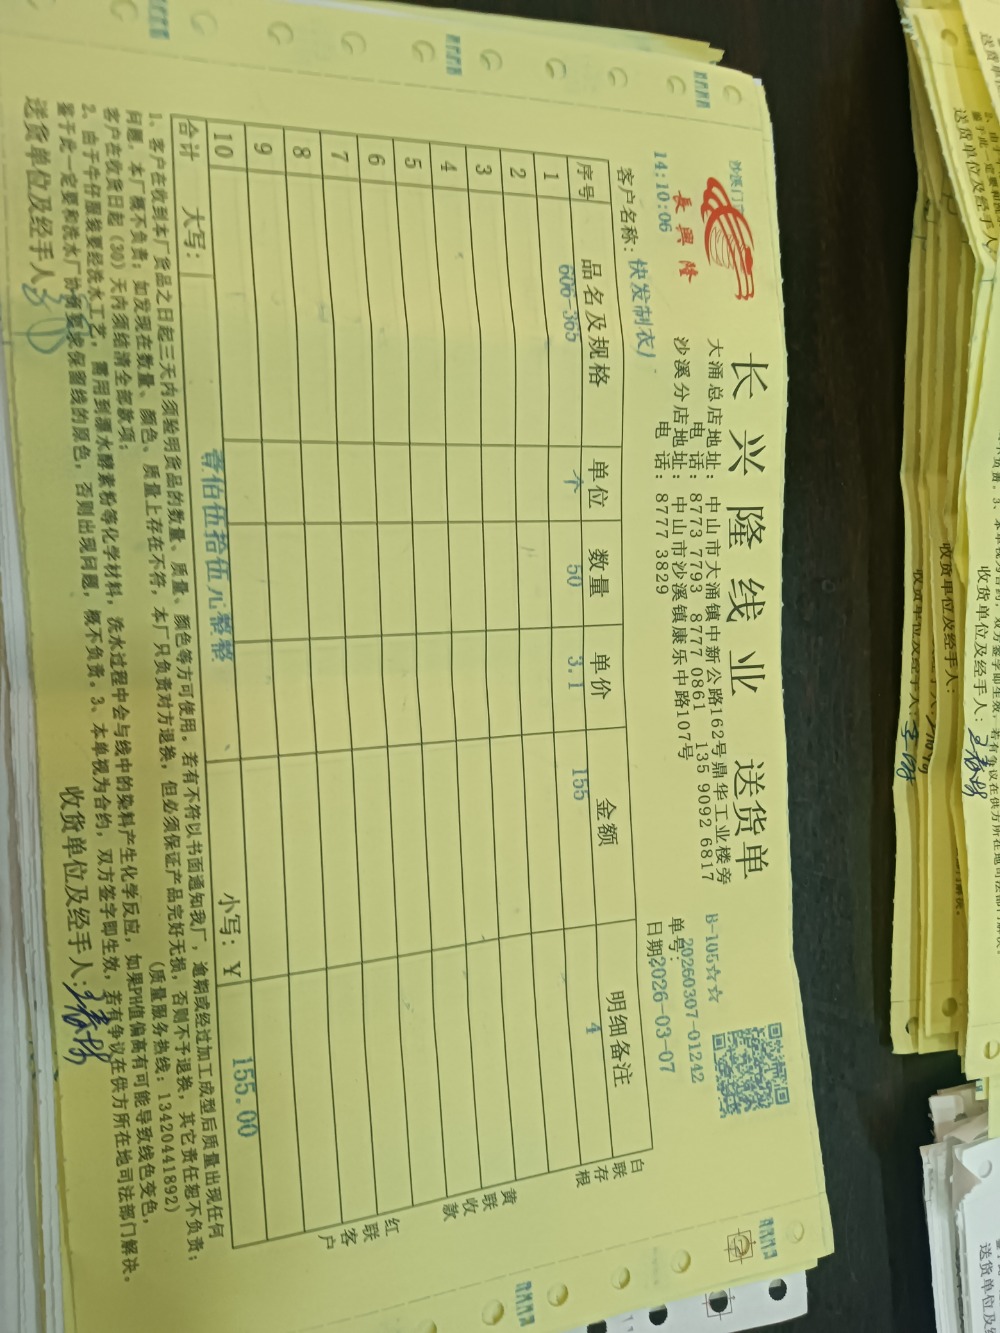 長興隆
长兴隆线业 送货单
大涌总店地址：中山市大涌镇中新公路162号鼎华工业楼旁
电 话：8773 7793 8777 0861 135 9092 6817
沙溪分店地址：中山市沙溪镇康乐中路107号
电 话：8777 3829
沙溪门
14:10:06
B-105☆☆
单号：20260307-01242
日期：2026-03-07
客户名称：快发制衣厂
序号 品名及规格 单位 数量 单价 金额 明细备注
1 606-365 个 50 3.1 155 4
2
3
4
5
6
7
8
9
10
合计 大写： 壹佰伍拾伍元整整 小写：￥ 155.00
白联存根
黄联收款
红联客户
1、客户在收到本厂货品之日起三天内须验明货品的数量、质量、颜色等方可使用。若有不符以书面通知我厂，逾期或经过加工成型后质量出现任何
问题，本厂概不负责；如发现在数量、颜色、质量上存在不符，本厂只负责对方退换，但必须保证产品完好无损，否则不予退换，其它责任恕不负责；
客户在收货日起（30）天内须给清全部款项； （质量服务热线：13420441892）
2、由于牛仔服装要经洗水工艺，需用到漂水酵素粉等化学材料，洗水过程中会与线中的染料产生化学反应，如果PH值偏高有可能导致线色变色，
鉴于此一定要和洗水厂协商要求保留线的原色，否则出现问题，概不负责。3、本单视为合约，双方签字即生效，若有争议在供方所在地司法部门解决。
送货单位及经手人：
收货单位及经手人：
收货单位及经手人：
收货单位及经手人：
收货单位及经手人：
送货单位及经手人